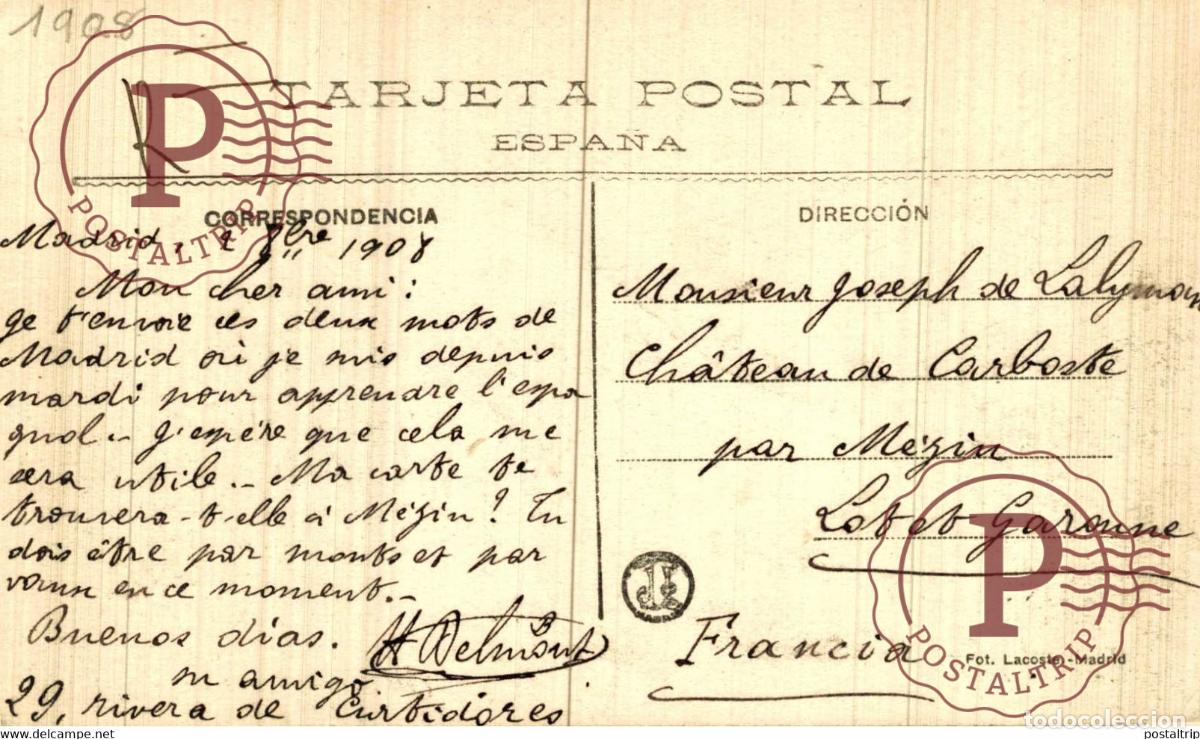 1908
TARJETA POSTAL
ESPAÑA
CORRESPONDENCIA
Madrid, 2 8bre 1908
Mon cher ami :
Je t'envoie ces deux mots de
Madrid où je suis depuis
mardi pour apprendre l'espa
gnol.. J'espère que cela me
sera utile.. Ma carte te
trouvera-t-elle à Mézin? Tu
dois être par monts et par
vaux en ce moment..
Buenos días.
su amigo
H Delmont
29, rivera de Curtidores
DIRECCIÓN
Monsieur Joseph de Lalyman
Château de Carboste
par Mézin
Lot et Garonne
Francia
Fot. Lacoste.-Madrid
P
POSTALTRIP
P
POSTALTRIP
todocoleccion
www.todocoleccion.net
postaltrip